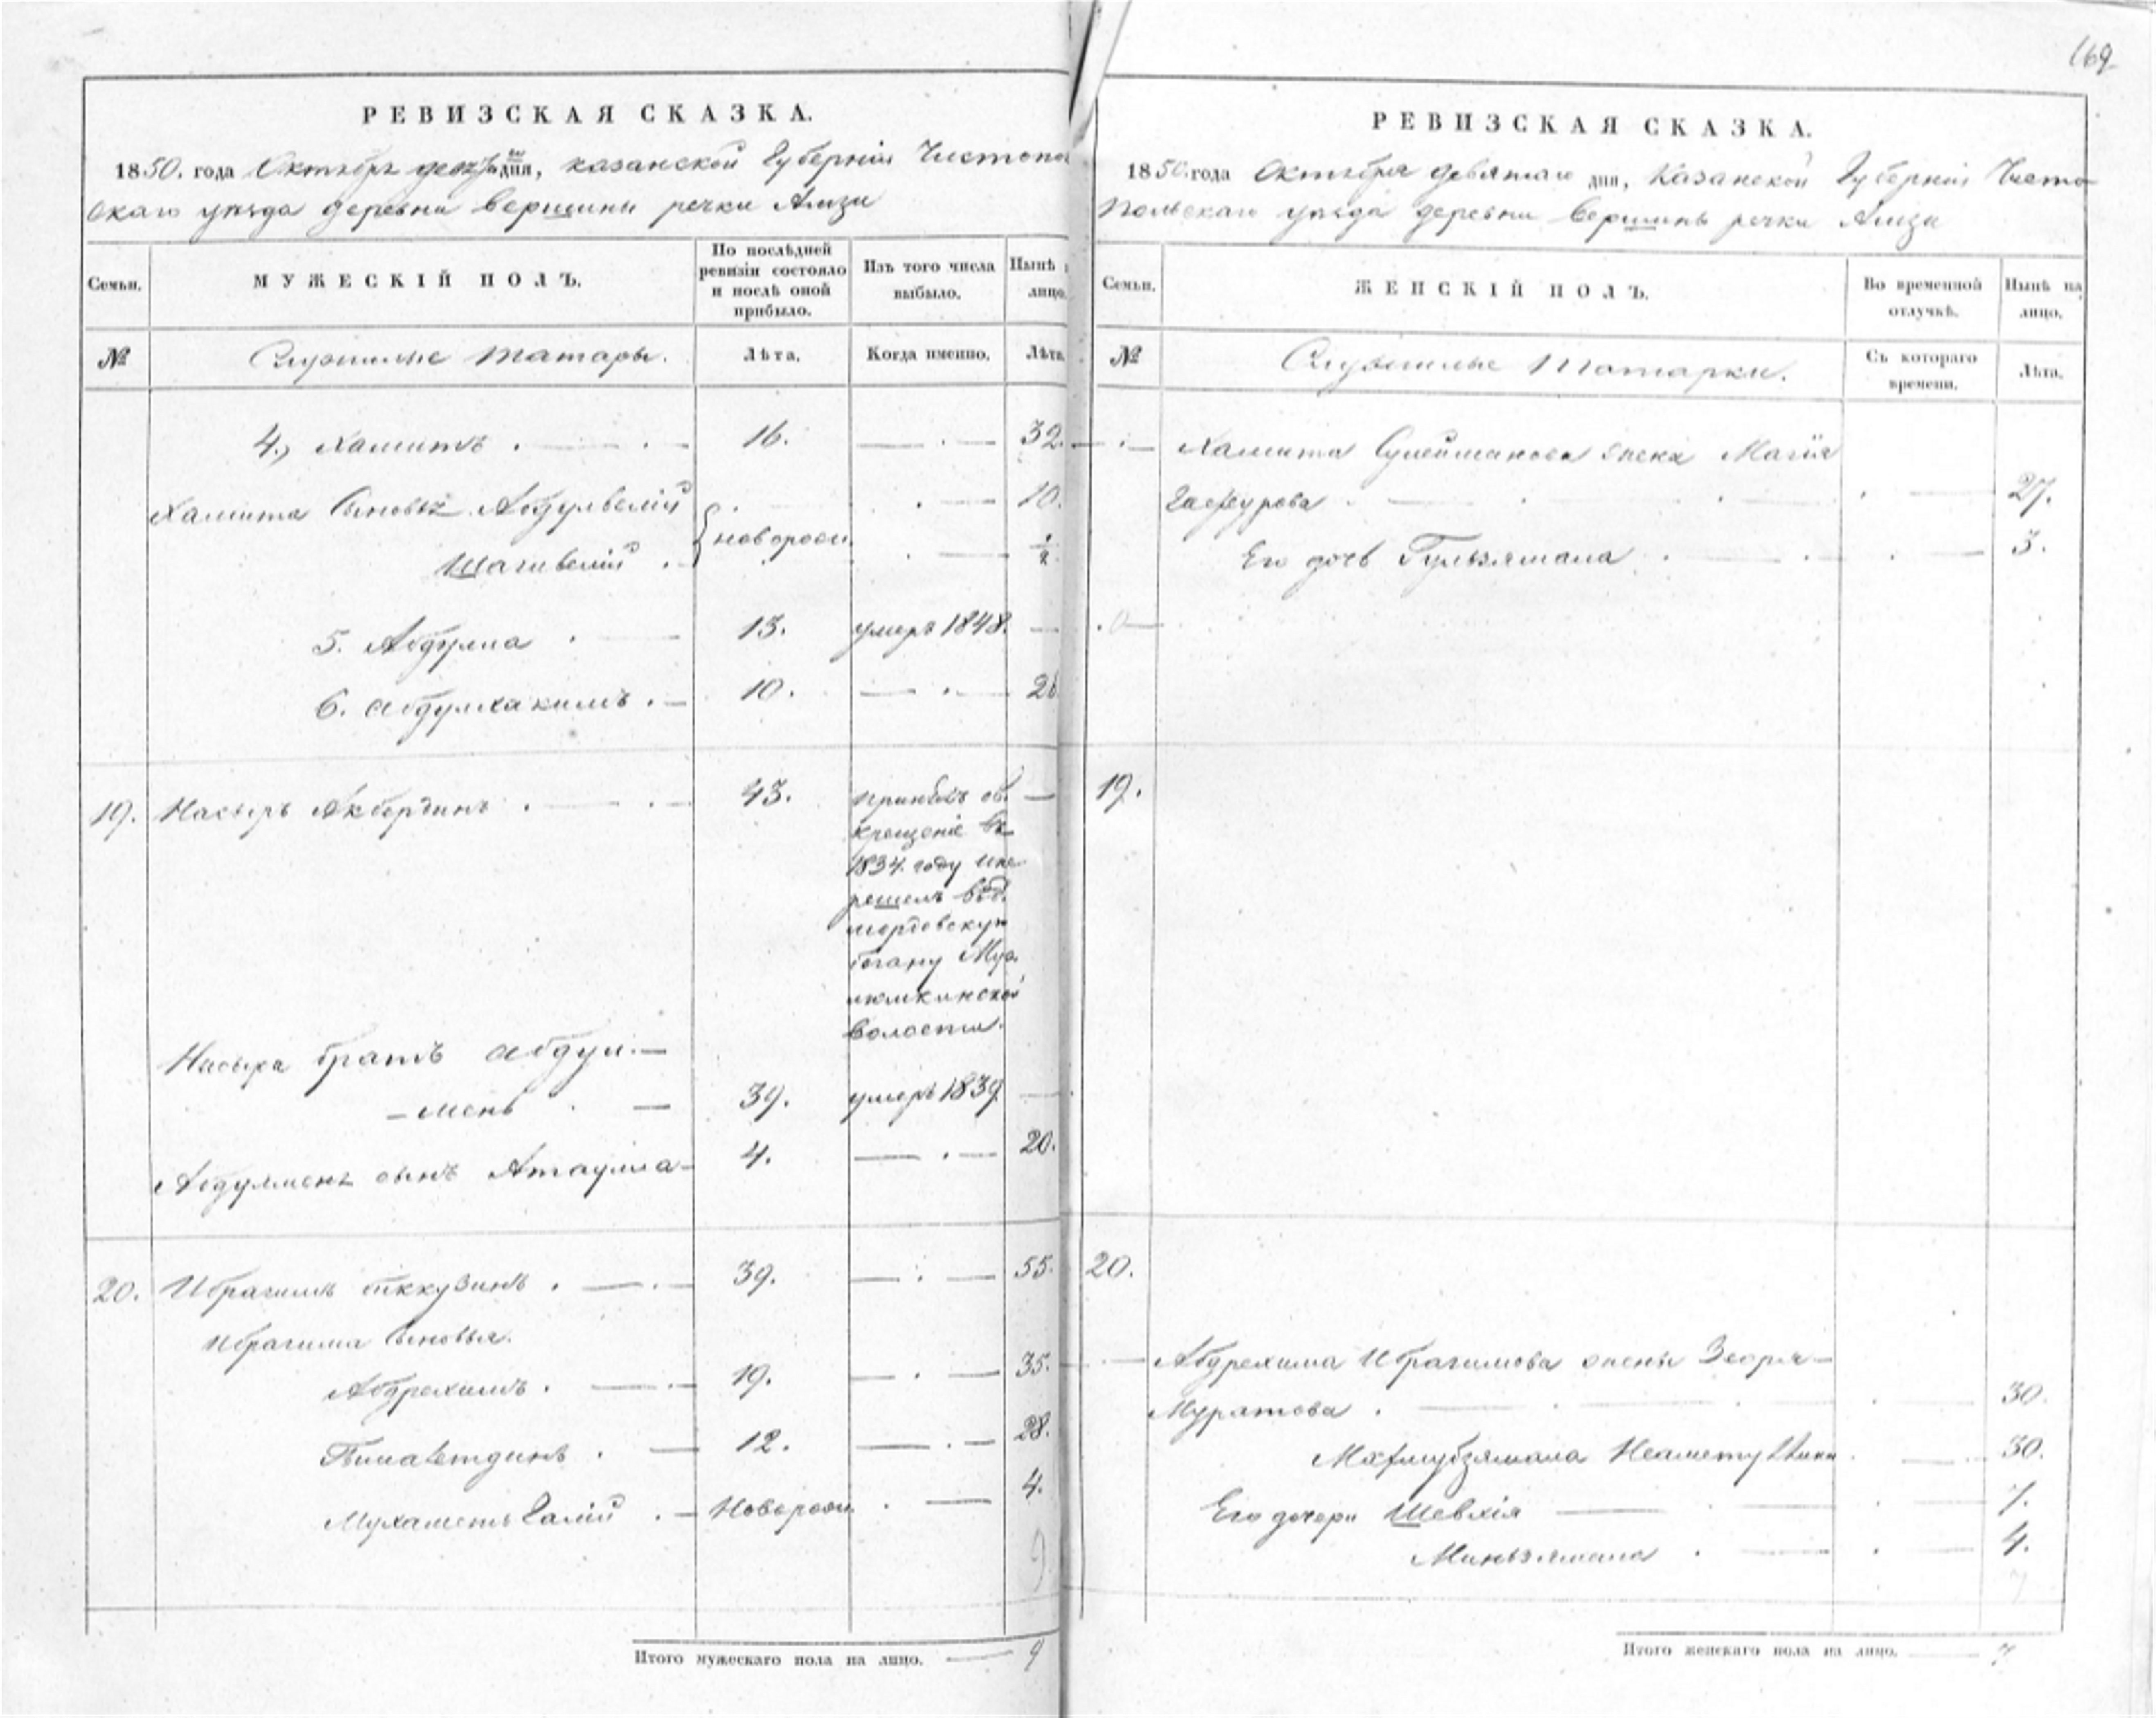 169
РЕВИЗСКАЯ СКАЗКА.
1850. года Октября дня, Казанской Губерніи Чистопо
скаго уѣзда деревни Вершины речки Амзи
Семьи. МУЖЕСКІЙ ПОЛЪ. По послѣдней ревизіи состояло и послѣ оной прибыло. Изъ того числа выбыло. Нынѣ лицо.
№ Служилые татары. Лѣта. Когда именно. Лѣта
4., Хамитъ . — . — 16. — . — 32.
Хамита Сыновья Абдулвелій . . — 10.
{ новорож.
Шагивелій . . — 1/2
5. Абдулла . — 13. умеръ 1848. —
6. Абдулхакимъ . — 10. — . — 26
19. Насыръ Акбердинъ . — . — 43. принялъ св. —
крещеніе въ
1834. году и пе
решелъ въ д.
мордовскую
Мус
люмкинской
волости.
Насыра братъ Абдул. —
— менъ . — 39. умеръ 1839 —
Абдулменя сынъ Атаулла — 4. — . — 20.
20. Ибрагимъ Яккузинъ . — . — 39. — . — 55.
Ибрагима Сыновья.
Абдрехимъ . — . — 19. — . — 35.
12. — . — 28.
Мухаметъ Галій . — Новорож. . — 4.
9
Итого мужескаго пола на лицо. — 9
РЕВИЗСКАЯ СКАЗКА.
1850. года Октября девятаго дня, Казанской Губерніи Чисто
польскаго уѣзда деревни Вершинъ речки Амзи
Семьи. ЖЕНСКІЙ ПОЛЪ. Во временной отлучкѣ. Нынѣ на лицо.
№ Служилые Татарки. Съ котораго времени. Лѣта.
— . — Хамита Сулейманова жена Магія
Гафурова . — . . . — 27.
Его дочь Гульзямала . — . . — 3.
19.
20.
— Абдрехима Ибрагимова жены Зеоря —
Муратова . — . — 30.
Махмубзямала . — 30.
Его дочери Шевхія — . — 7.
Миньзямала . — . — 4.
7
Итого женскаго пола на лицо. — 7